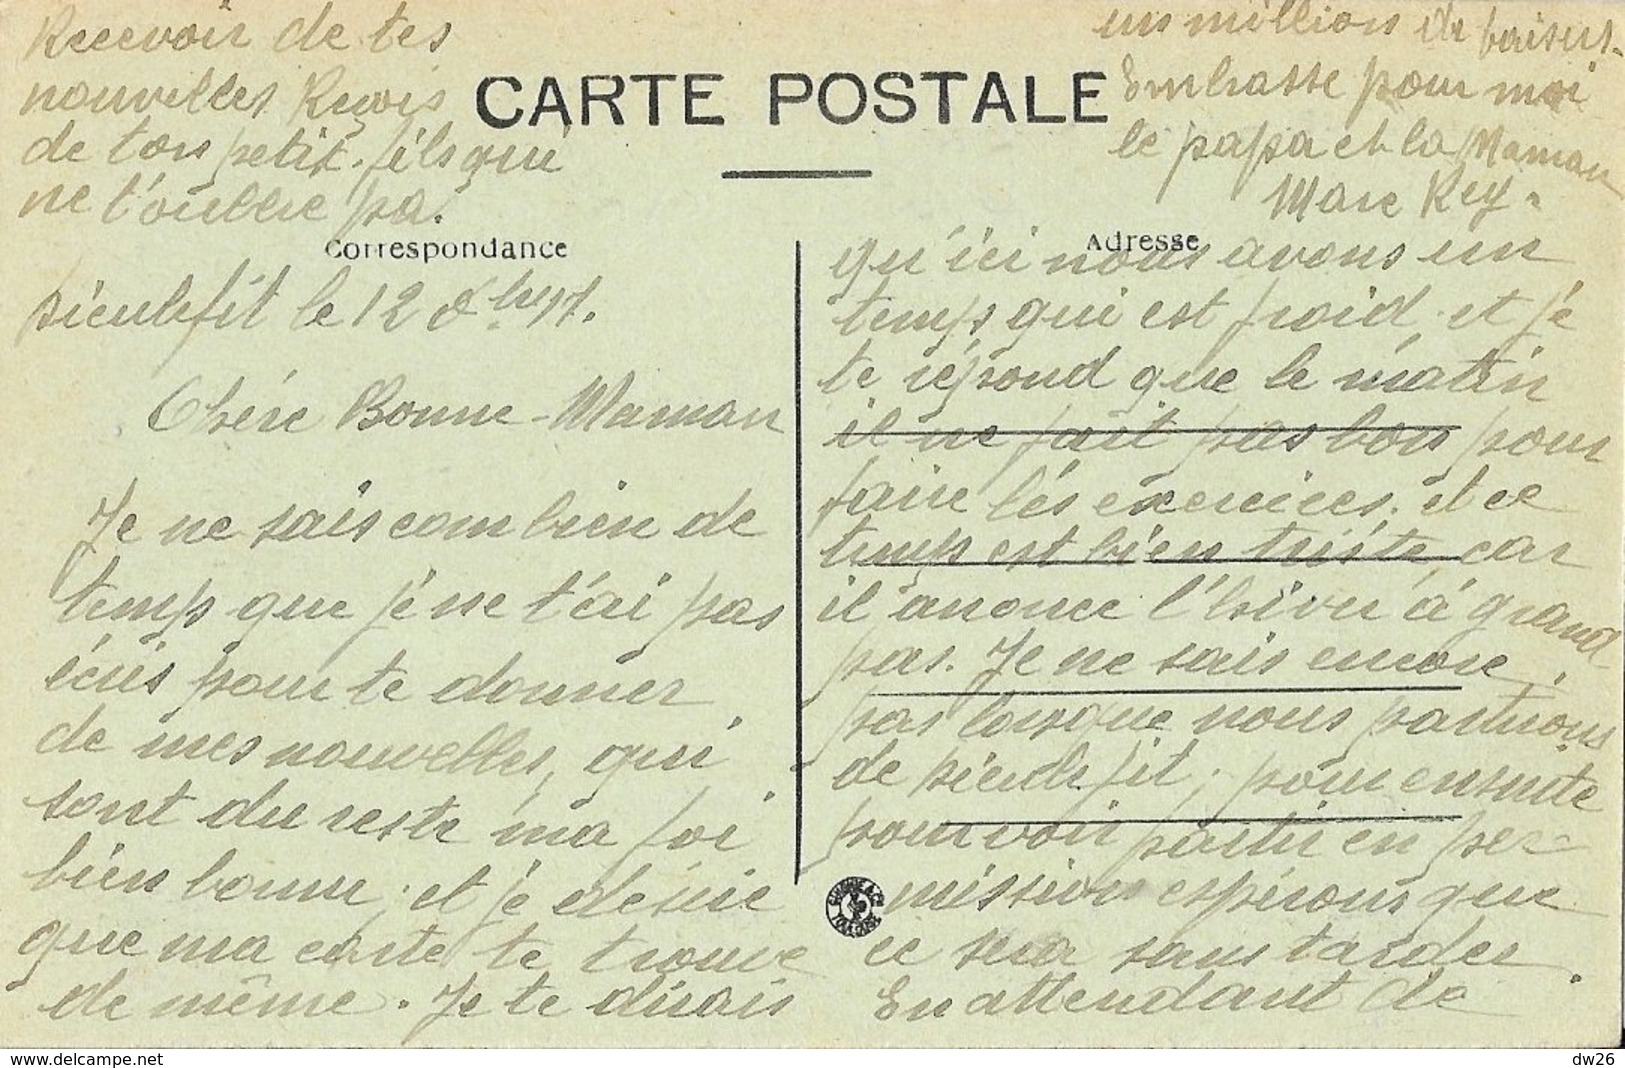 CARTE POSTALE
Correspondance
Adresse
Dieulefit le 12 8bre 17.
Chère Bonne-Maman
Je ne sais combien de
temps que je ne t'ai pas
écris pour te donner
de mes nouvelles, qui
sont du reste ma foi
bien bonne, et je désire
que ma carte te trouve
de même. Je te dirais
qu'ici nous avons un
temps qui est froid, et je
te répond que le matin
il ne fait pas bon pour
faire les exercices. et ce
temps est bien triste, car
il anonce l'hiver à grand
pas. Je ne sais encore
pas lorsque nous partirons
de Dieulefit, pour ensuite
pouvoir partir en per-
mission espérons que
ce sera sans tarder
En attendant de
Recevoir de tes
nouvelles Reçois
de ton petit-fils qui
ne t'oublie pa.
un million de baisers.
Embrasse pour moi
le papa et la Maman
Marc Rey.
dw26
www.delcampe.net